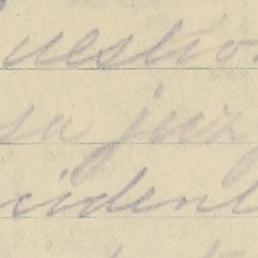 uestion
sa juz
cident